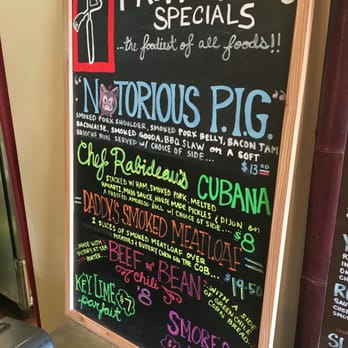 SPECIALS
...the foodiest of all foods!!
"NOTORIOUS P.I.G."
SMOKED PORK SHOULDER, SMOKED PORK BELLY, BACON JAM
BACONAISE, SMOKED GOUDA, BBQ SLAW ON A SOFT
BRIOCHE BUN SERVED W/ CHOICE OF SIDE....
$13.00
Chef Rabideau's CUBANA
STACKED W/ HAM, SMOKED PORK, MELTED
SAUCE, HOUSE MADE PICKLES
A PRESSED W/ CHOICE OF SIDE....
$8
DADDY'S SMOKED MEATLOAF
2 SLICES OF SMOKED MEATLOAF OVER
POTATOES & BUTTERY CORN ON THE COB...
$19.50
MADE WITH
VICTORY AT SEA
PORTER
BEEF N' BEAN
Chili
8
WITH A SIDE
OF GREEN &
CORNBREAD.
KEY LIME
parfait
SMORES